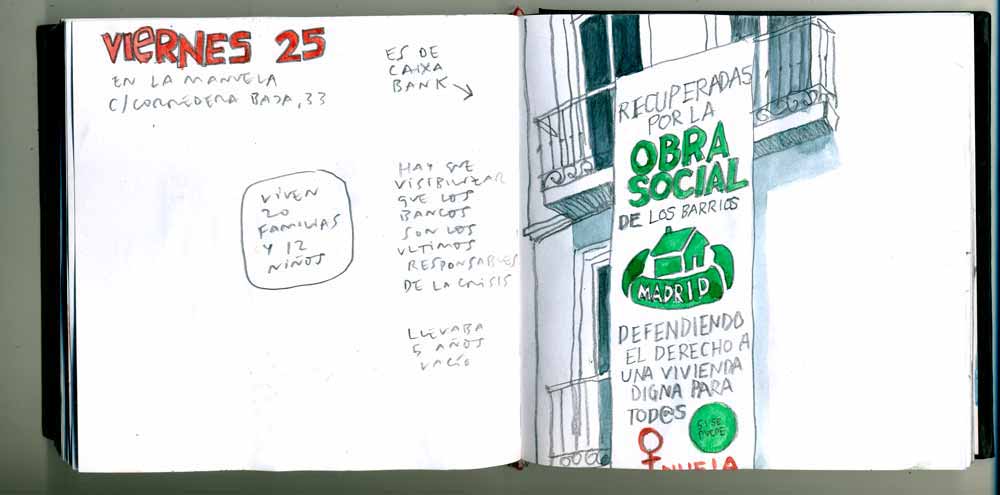 VIeRNES 25
EN LA MANUELA
C/CORREDERA BAJA, 33
VIVEN
20
FAMILIAS
Y 12
NIÑOS
ES DE
CAIXA
BANK
HAY QUE
VISIBILIZAR
QUE LOS
BANCOS
SON LOS
ULTIMOS
RESPONSABLES
DE LA CRISIS
LLEVABA
5 AÑOS
VACÍO
RECUPERADAS
POR LA
OBRA
SOCIAL
DE LOS BARRIOS
MADRID
DEFENDIENDO
EL DERECHO A
UNA VIVIENDA
DIGNA PARA
TOD@S
SI SE
PUEDE
NUELA